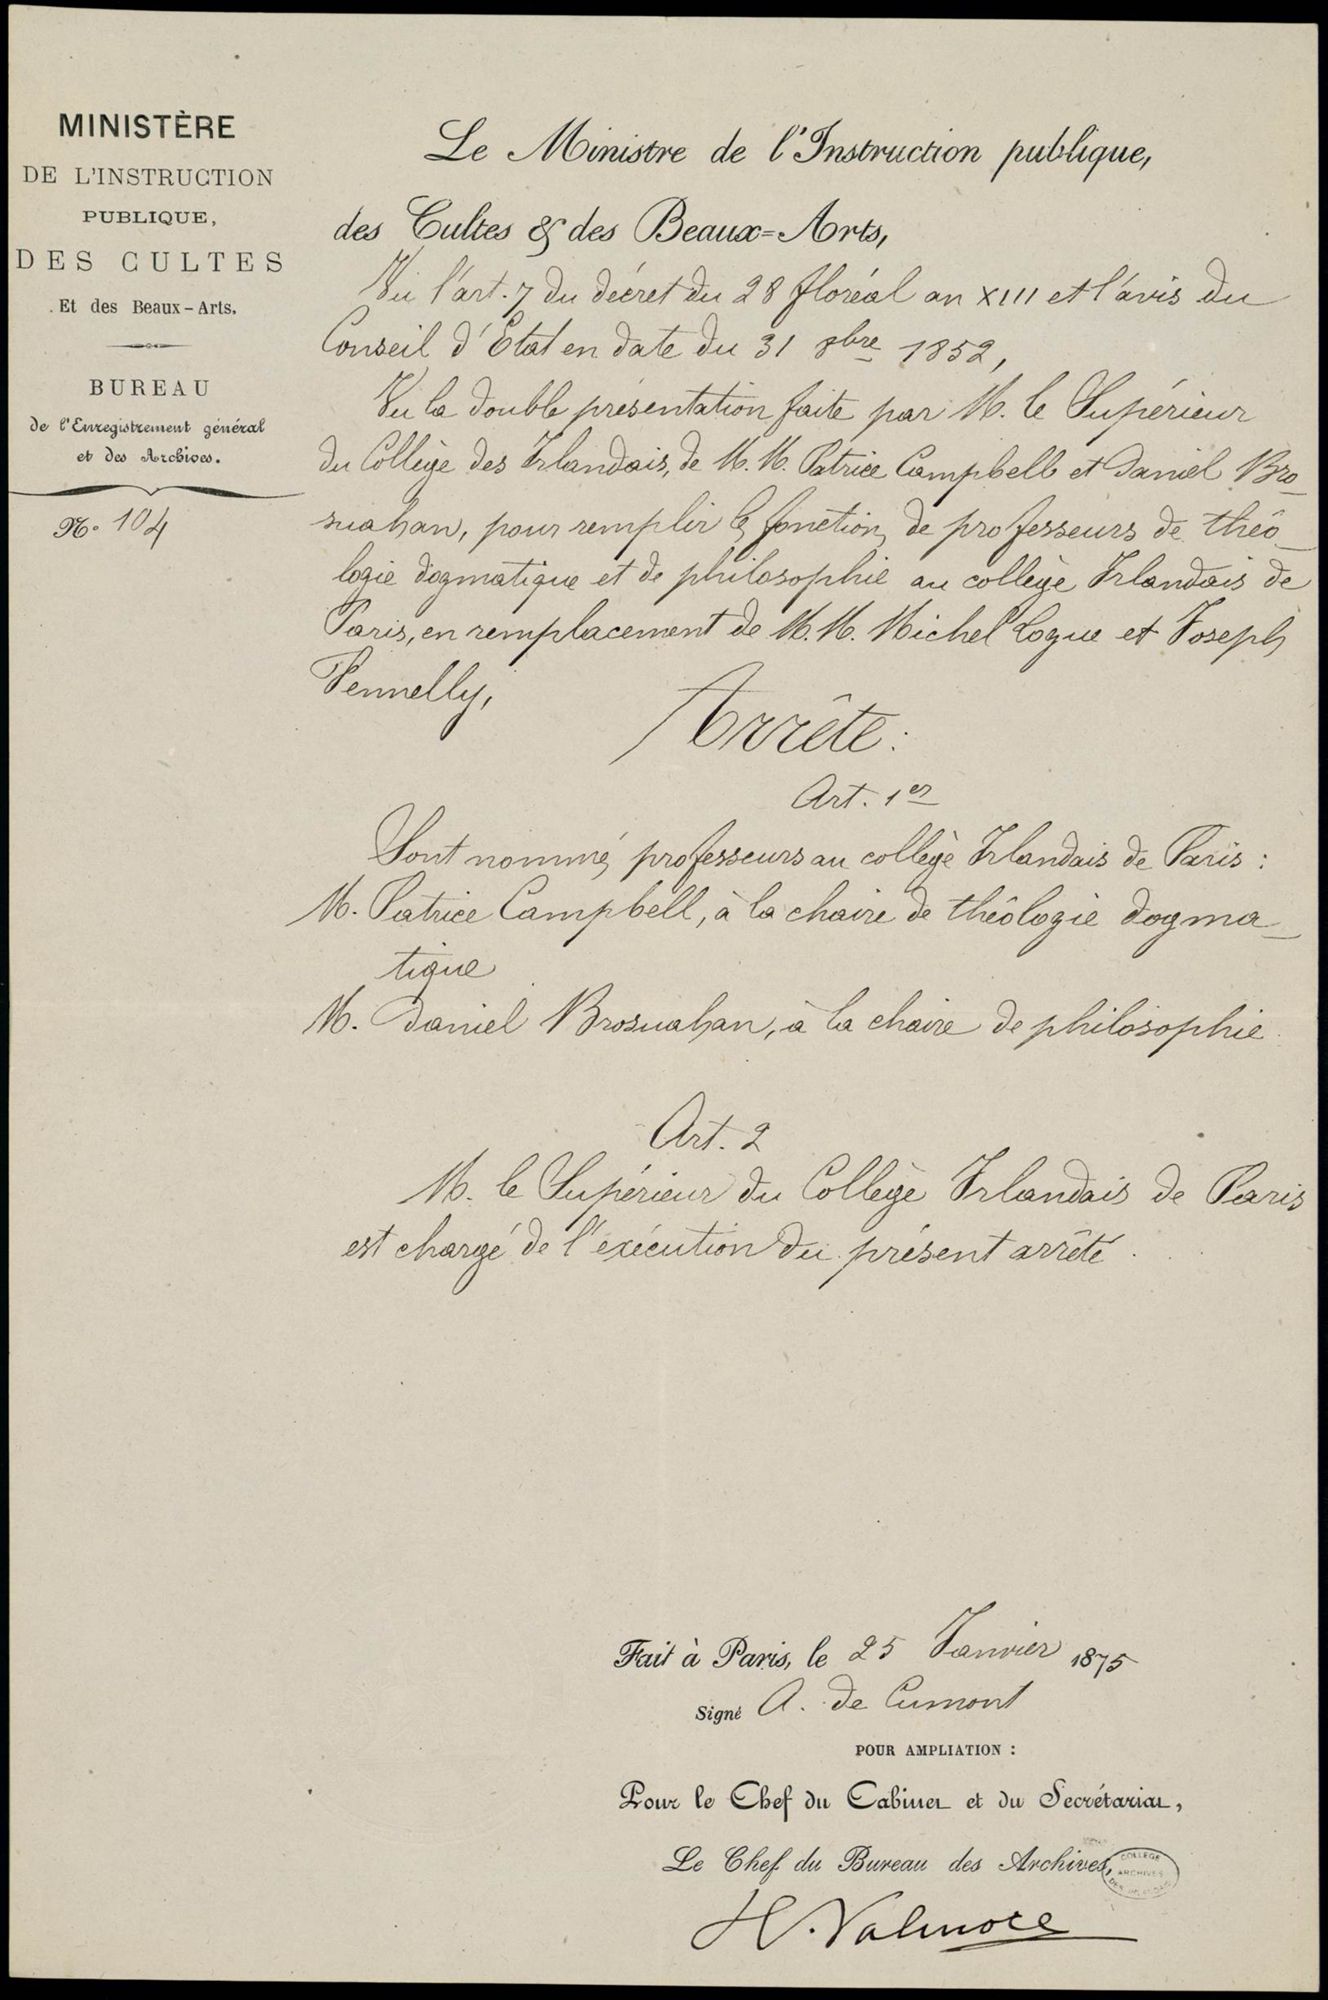 MINISTÈRE
DE L'INSTRUCTION
PUBLIQUE,
DES CULTES
Et des Beaux-Arts.
BUREAU
de l'Enregistrement général
et des Archives.
N.º 104
Le Ministre de l'Instruction publique,
des Cultes & des Beaux=Arts,
Vu l'art. 7 du décret du 28 floréal an XIII et l'avis du
Conseil d'Etat en date du 31 8bre 1852,
Vu la double présentation faite par M. le Supérieur
du Collège des Irlandais, de M.M. Patrice Campbell et Daniel Bro_
snahan, pour remplir les fonctions de professeurs de théo_
logie dogmatique et de philosophie au collège Irlandais de
Paris, en remplacement de M.M. Michel Logue et Joseph
Fennelly,
Arrête:
Art. 1er
Sont nommés professeurs au collège Irlandais de Paris :
M. Patrice Campbell, à la chaire de théologie dogma_
tique
M. Daniel Brosnahan, à la chaire de philosophie.
Art. 2
M. le Supérieur du Collège Irlandais de Paris
est chargé de l'exécution du présent arrêté.
Fait à Paris, le 25 Janvier 1875
Signé A. de Cumont
POUR AMPLIATION :
Pour le Chef du Cabinet et du Secrétariat,
Le Chef du Bureau des Archives,
COLLEGE
ARCHIVES
DES IRLANDAIS
H. Valmore